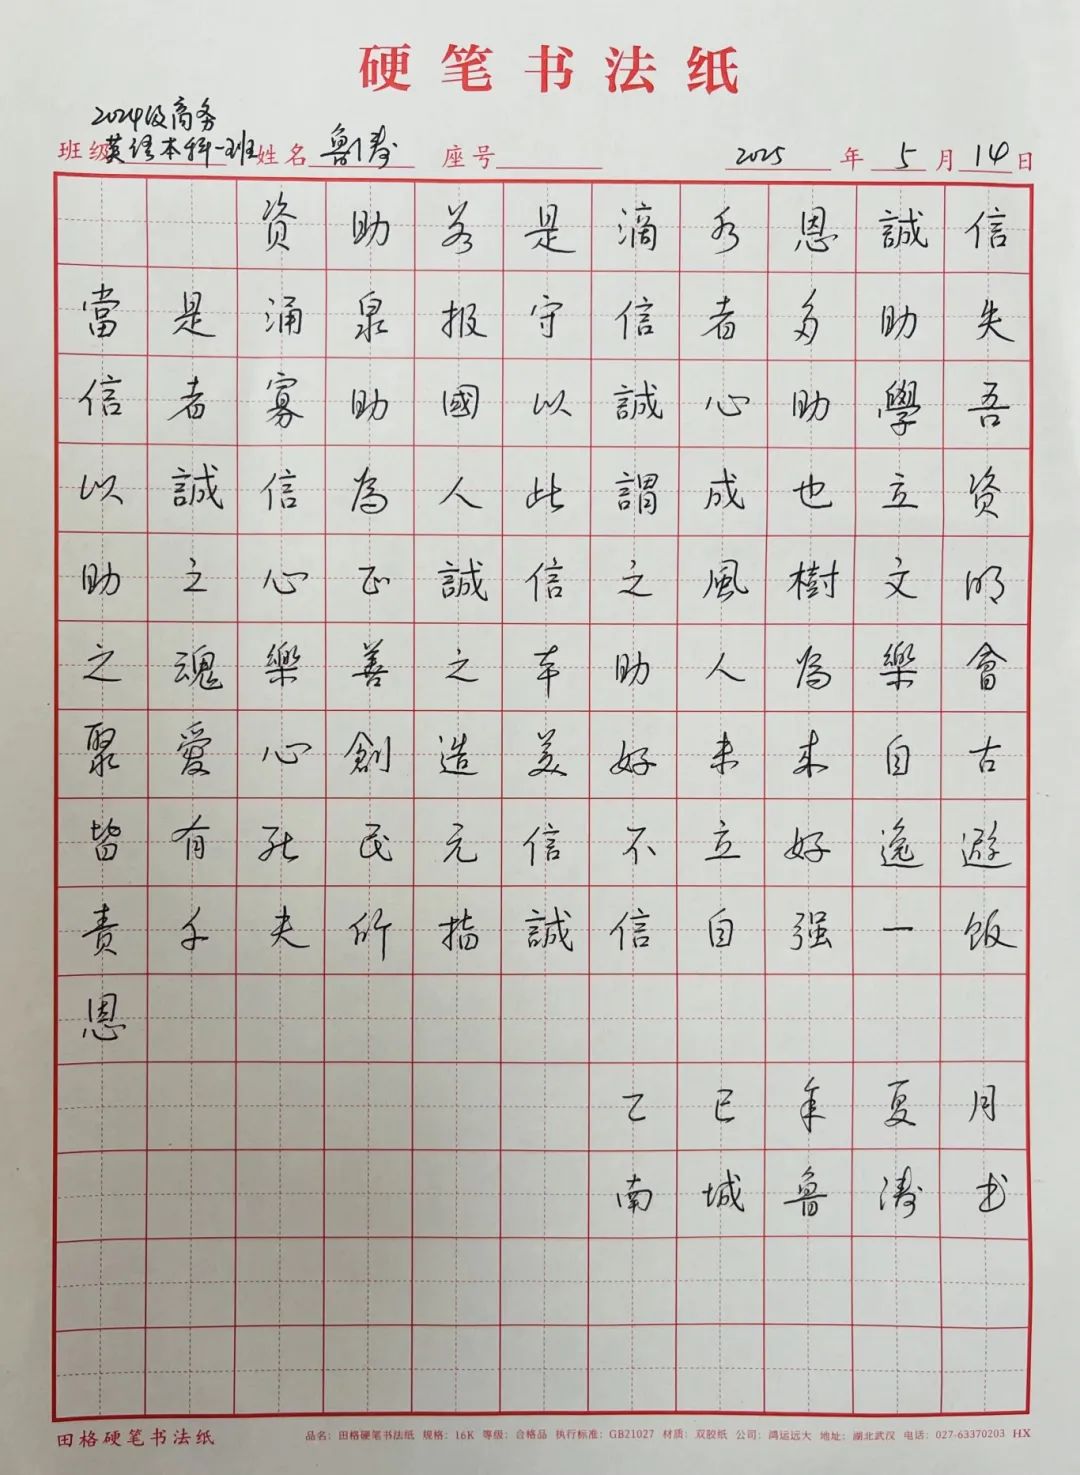 硬笔书法纸
2024级商务
班级 英语本科一班 姓名 鲁涛 座号 2025 年 5 月 14 日
资助若是滴水恩誠信
當是涌泉报守信者多助失
信者寡助國以誠心助學吾
以誠信為人此謂成也立资
助之心正誠信之風樹文明
之魂樂善之本助人為樂會
聚愛心創造美好未来自古
皆有死民无信不立好逸避
责千夫所指誠信自强一饭
恩
乙巳年夏月
南城魯涛书
田格硬笔书法纸 品名：田格硬笔书法纸 规格：16K 等级：合格品 执行标准：GB21027 材质：双胶纸 公司：鸿运远大 地址：湖北武汉 电话：027-63370203 HX